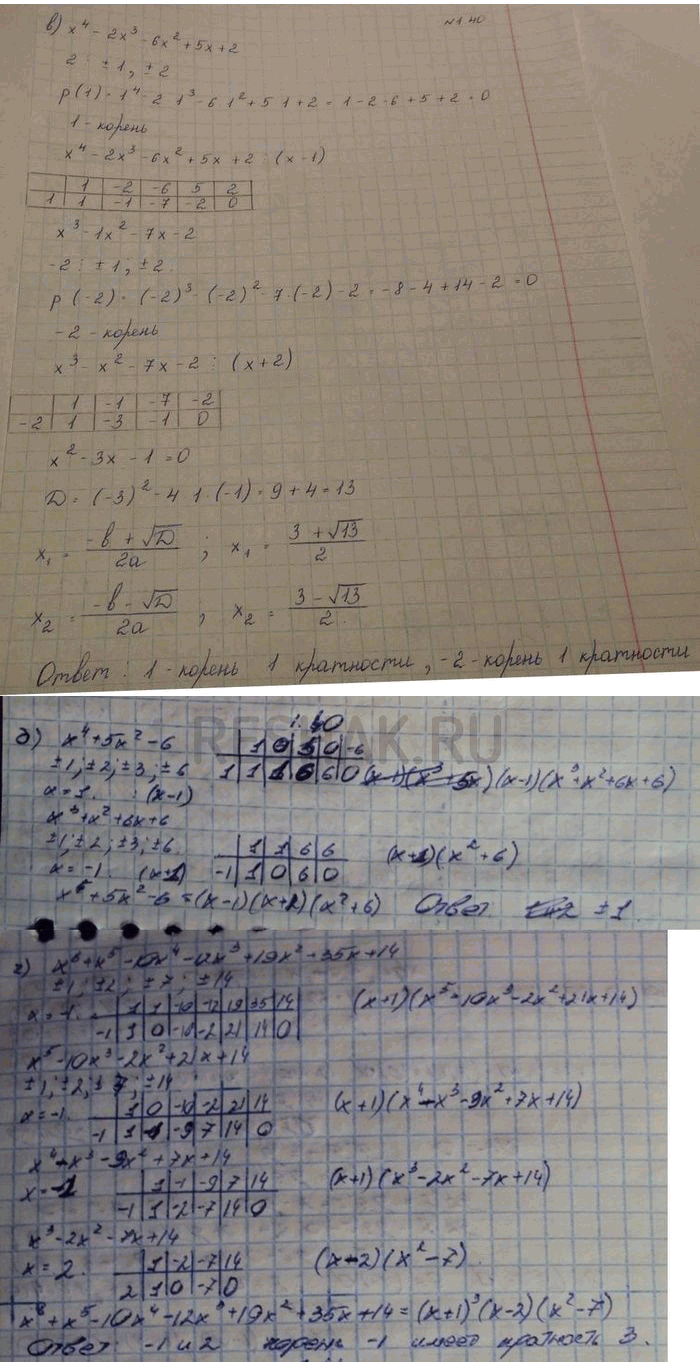 в) x⁴ - 2x³ - 6x² + 5x + 2
№1.40
2 : ±1, ±2
p(1) = 1⁴ - 2·1³ - 6·1² + 5·1 + 2 = 1 - 2 - 6 + 5 + 2 = 0
1 - корень
x⁴ - 2x³ - 6x² + 5x + 2 : (x-1)
1 -2 -6 5 2
1 1 -1 -7 -2 0
x³ - 1x² - 7x - 2
-2 : ±1; ±2
p(-2) = (-2)³ - (-2)² - 7·(-2) - 2 = -8 - 4 + 14 - 2 = 0
-2 - корень
x³ - x² - 7x - 2 : (x+2)
1 -1 -7 -2
-2 1 -3 -1 0
x² - 3x - 1 = 0
D = (-3)² - 4·1·(-1) = 9 + 4 = 13
x₁ = (-b + √D)/2a ; x₁ = (3 + √13)/2
x₂ = (-b - √D)/2a ; x₂ = (3 - √13)/2
Ответ: 1 - корень 1 кратности, -2 - корень 1 кратности
1.40
RESHAK.RU
д) x⁴ + 5x² - 6
1 0 5 0 -6
±1; ±2; ±3; ±6
1 1 1 6 6 0 (x-1)(x³+x²+6x+6)
x = 1. : (x-1)
x³ + x² + 6x + 6
±1; ±2; ±3; ±6
1 1 6 6
x = -1. (x+1)
-1 1 0 6 0
(x+1)(x²+6)
x⁴ + 5x² - 6 = (x-1)(x+1)(x²+6) Ответ ±1.
г) x⁶ + x⁵ - 10x⁴ - 12x³ + 19x² + 35x + 14
±1; ±2; ±7; ±14
x = -1. 1 1 -10 -12 19 35 14
-1 1 0 -10 -2 21 14 0
(x+1)(x⁵-10x³-2x²+21x+14)
x⁵ - 10x³ - 2x² + 21x + 14
±1; ±2; ±7; ±14
x = -1. 1 0 -10 -2 21 14
-1 1 -1 -9 7 14 0
(x+1)(x⁴-x³-9x²+7x+14)
x⁴ - x³ - 9x² + 7x + 14
x = -1 1 -1 -9 7 14
-1 1 -2 -7 14 0
(x+1)(x³-2x²-7x+14)
x³ - 2x² - 7x + 14
x = 2. 1 -2 -7 14
2 1 0 -7 0
(x-2)(x²-7)
x⁶ + x⁵ - 10x⁴ - 12x³ + 19x² + 35x + 14 = (x+1)³(x-2)(x²-7)
Ответ: -1 и 2 корень -1 имеет кратность 3.